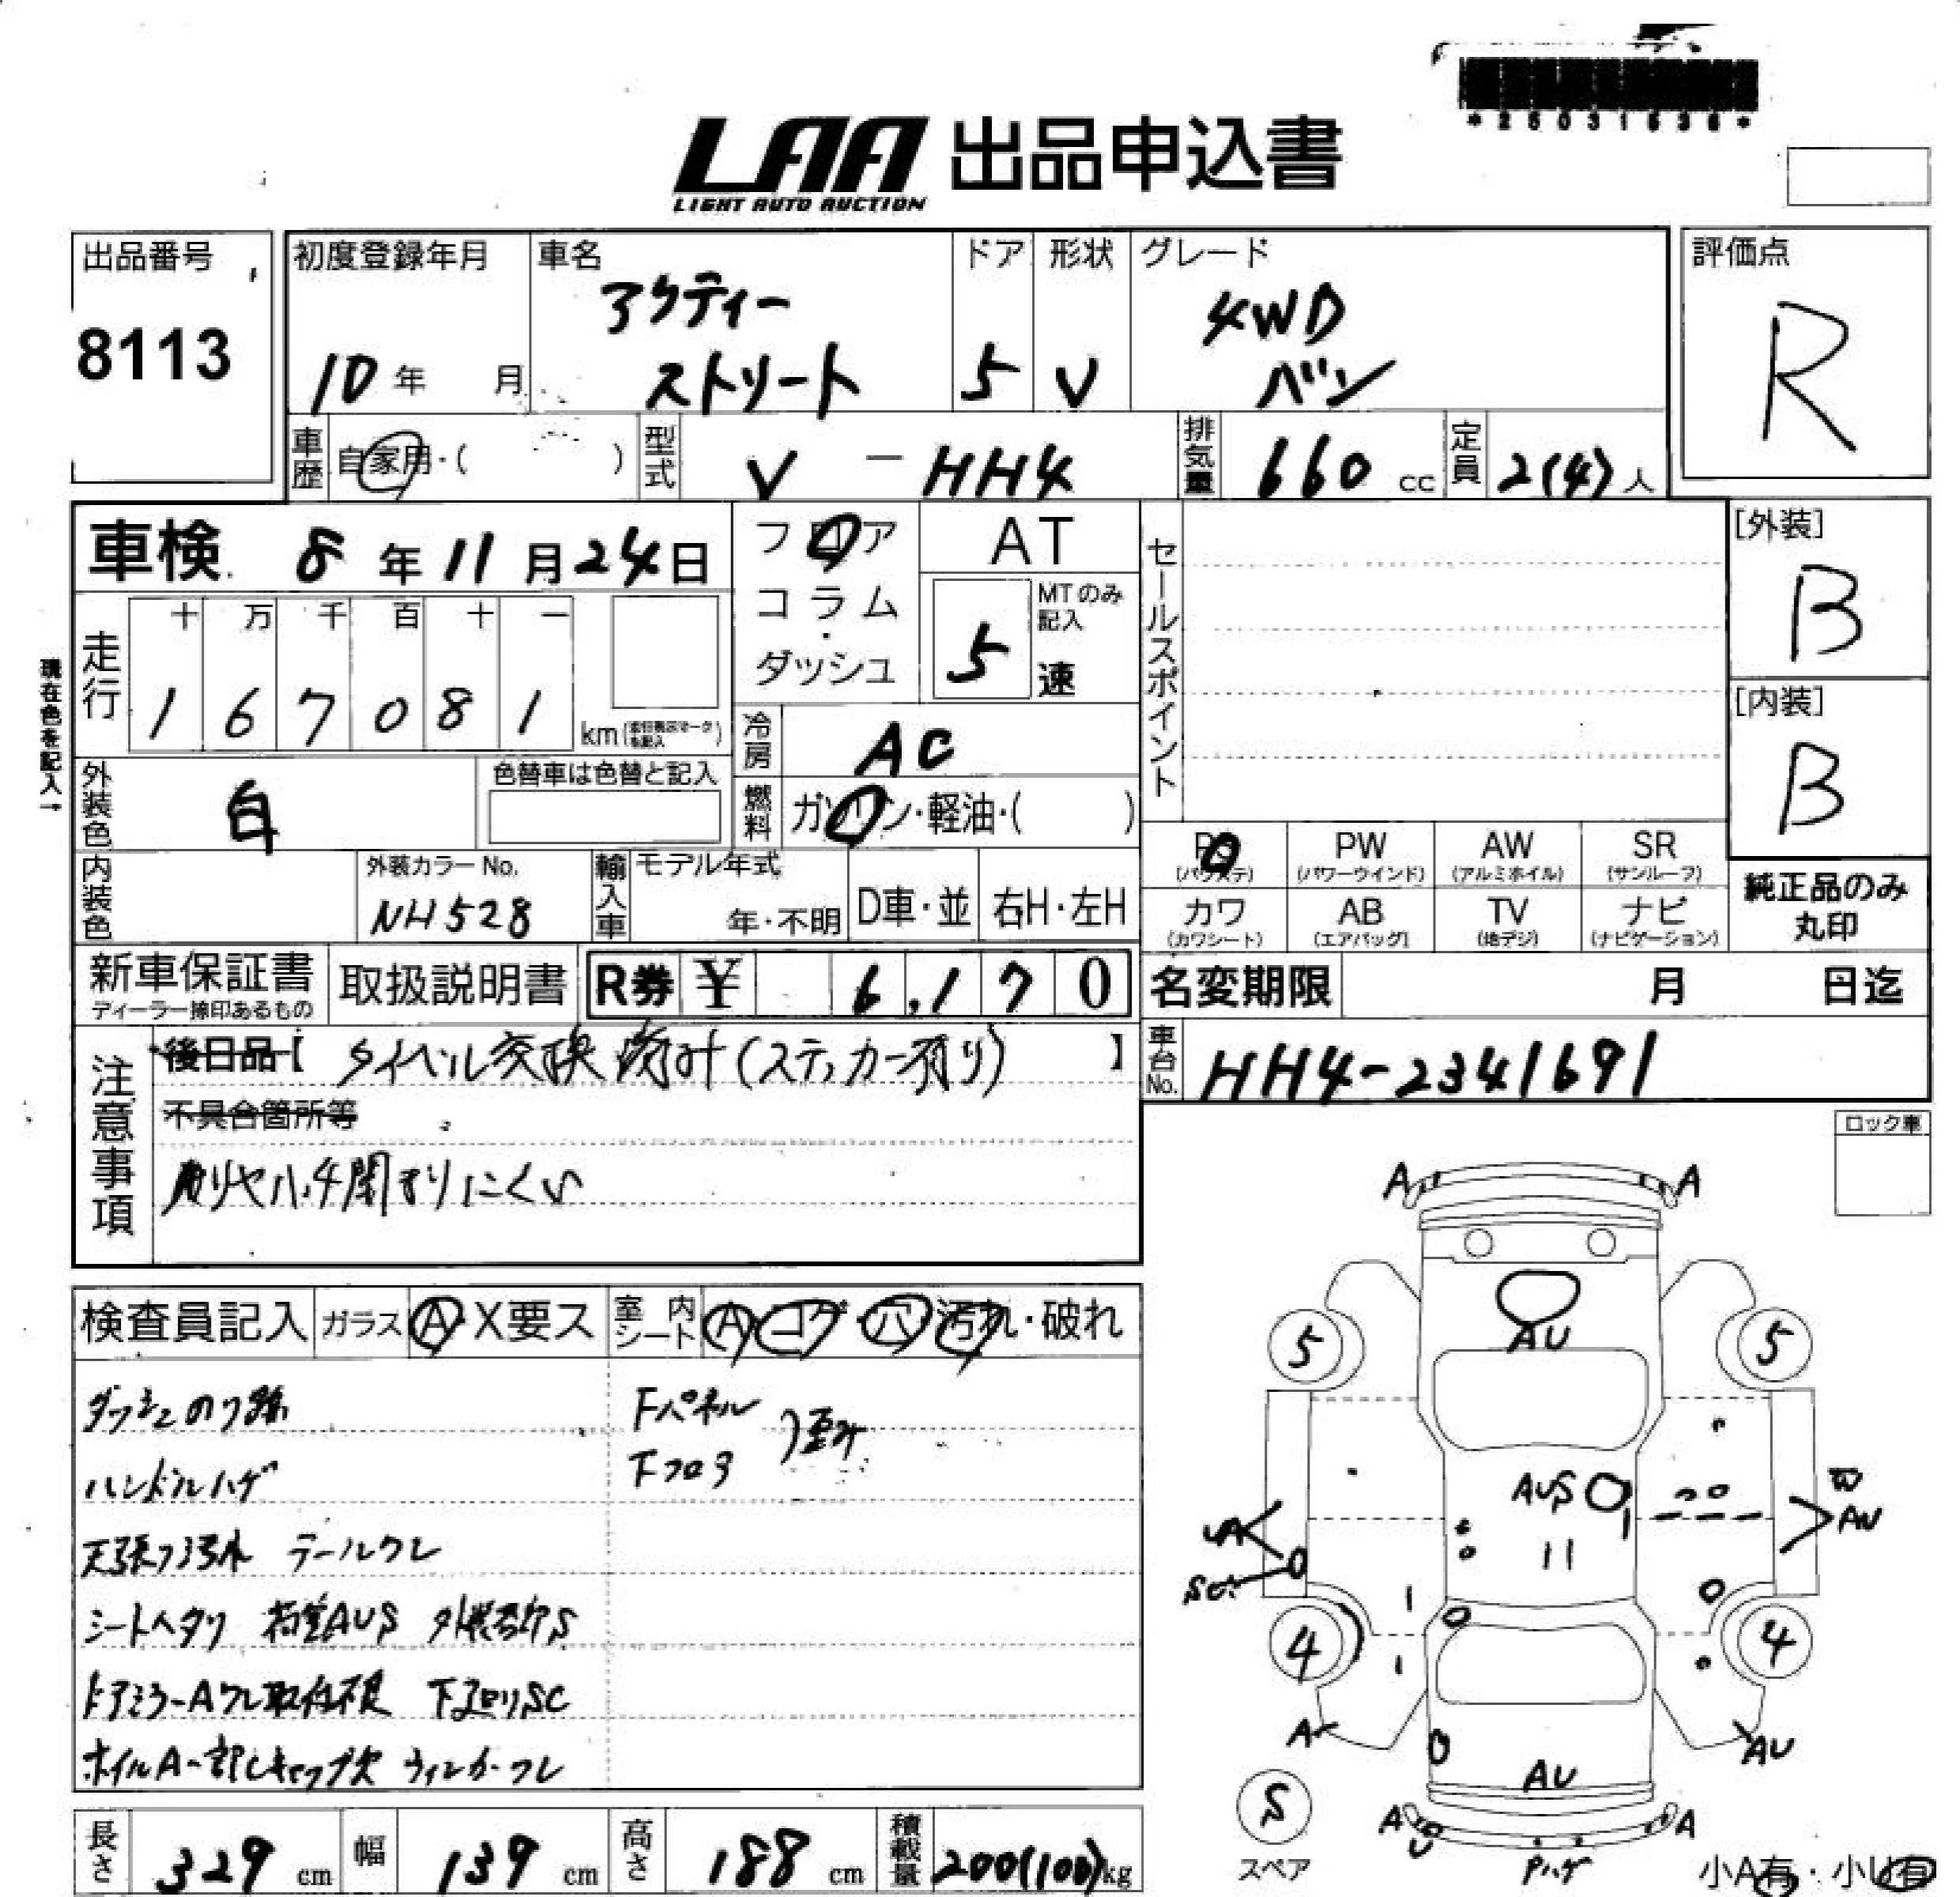 LAA 出品申込書
LIGHT AUTO AUCTION
出品番号
8113
初度登録年月
10年 月
車名
アクティー
ストリート
ドア
5
形状
V
グレード
4WD
バン
評価点
R
車歴
自家用・( )
型式
V - HH4
排気量
660 cc
定員
2(4)人
車検 8年11月24日
フロア
コラム・
ダッシュ
AT
MTのみ記入
5速
セールスポイント
[外装]
B
[内装]
B
現在色を記入→
走行
十 万 千 百 十 一
1 6 7 0 8 1
km
冷房
AC
外装色
白
色替車は色替と記入
燃料
ガソリン・軽油・( )
内装色
外装カラーNo.
NH528
輸入車
モデル年式
年・不明
D車・並
右H・左H
PS
(パワステ)
PW
(パワーウインド)
AW
(アルミホイル)
SR
(サンルーフ)
カワ
(カワシート)
AB
(エアバッグ)
TV
(地デジ)
ナビ
(ナビゲーション)
純正品のみ
丸印
新車保証書
ディーラー捺印あるもの
取扱説明書
R券 ¥ 6,170
名変期限 月 日迄
注意事項
後日品【 タイベル交換済み(ステッカー有り) 】
不具合箇所等
リヤハッチ閉まりにくい
車台No.
HH4-2341691
ロック車
検査員記入
ガラス A・X要ス
室内シート A・コゲ・穴・汚れ・破れ
ダッシュのリ跡
ハンドルハゲ
天張り汚れ テールワレ
シートヘタリ 荷室AUS 外装各所S
ドアミラーAワレ取付不良 下廻りSC
ホイルA一部Cキャップ欠 ウィンカーワレ
Fパネル
Fフロア
歪み
A A
AU
5 5
AUS
AU
4 4
A
AU
AU
S
スペア
A A
U
Pハゲ
小A有・小U有
長さ 329 cm
幅 139 cm
高さ 188 cm
積載量 200(100)kg